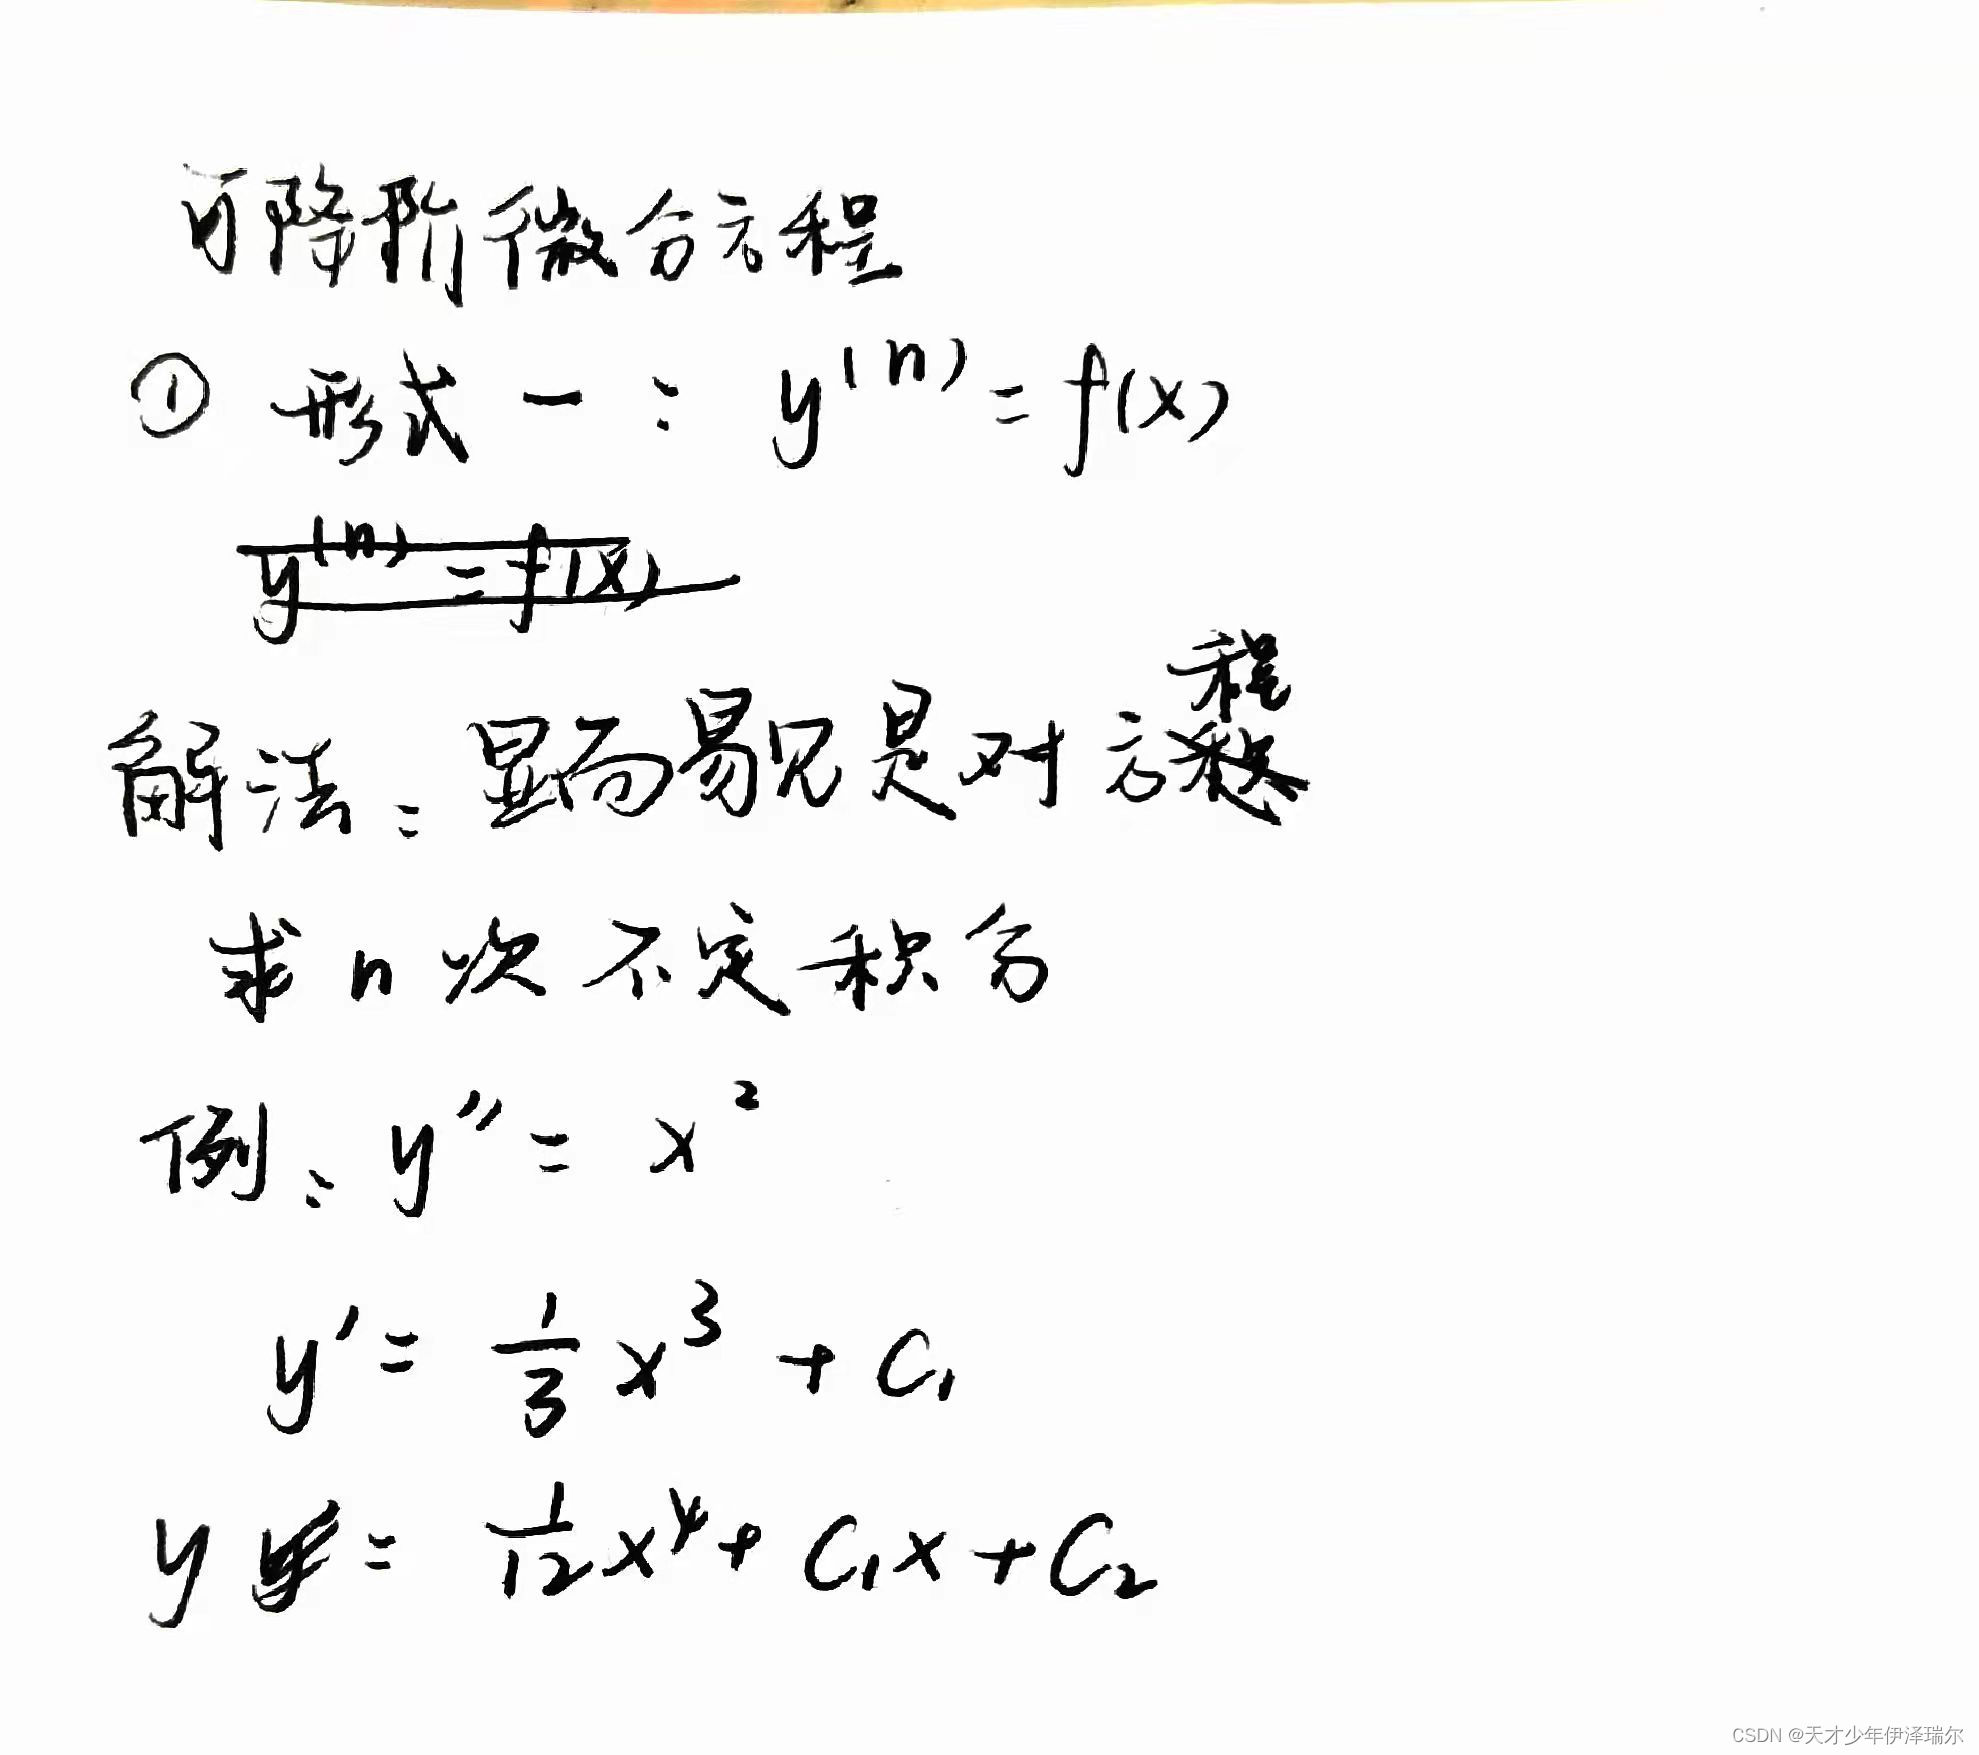 可降阶微分方程
① 形式一：y⁽ⁿ⁾ = f(x)
y⁽ⁿ⁾ = f(x)
解法：显而易见是对方程
求n次不定积分
例：y″ = x²
y′ = 1/3 x³ + C₁
y = 1/12 x⁴ + C₁x + C₂
CSDN @天才少年伊泽瑞尔